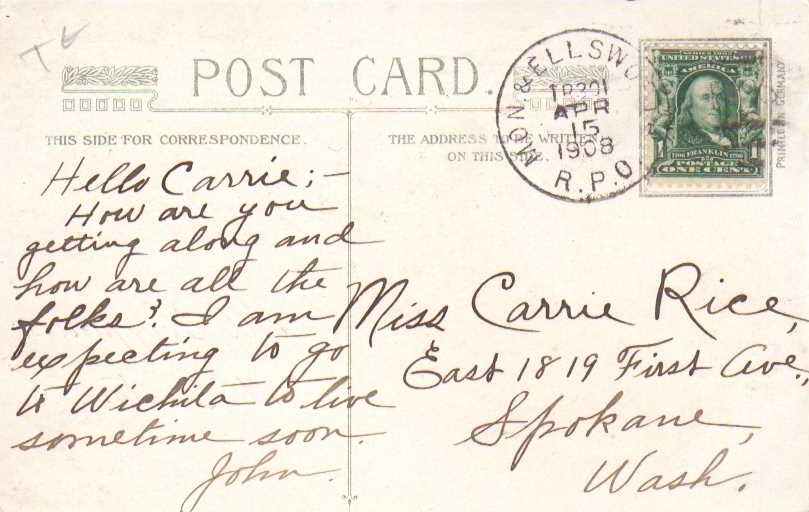 T L
POST CARD.
THIS SIDE FOR CORRESPONDENCE.
THE ADDRESS TO BE WRITTEN
ON THIS SIDE.
& ELLSWO
TR 301
APR
15
1908
R.P.O.
SERIES 1902
UNITED STATES OF
AMERICA
1706 FRANKLIN 1790
POSTAGE
ONE CENT
PRINTED IN GERMANY
Hello Carrie;-
How are you
getting along and
how are all the
folks? I am
expecting to go
to Wichita to live
sometime soon.
John.
Miss Carrie Rice,
East 1819 First Ave.,
Spokane,
Wash.